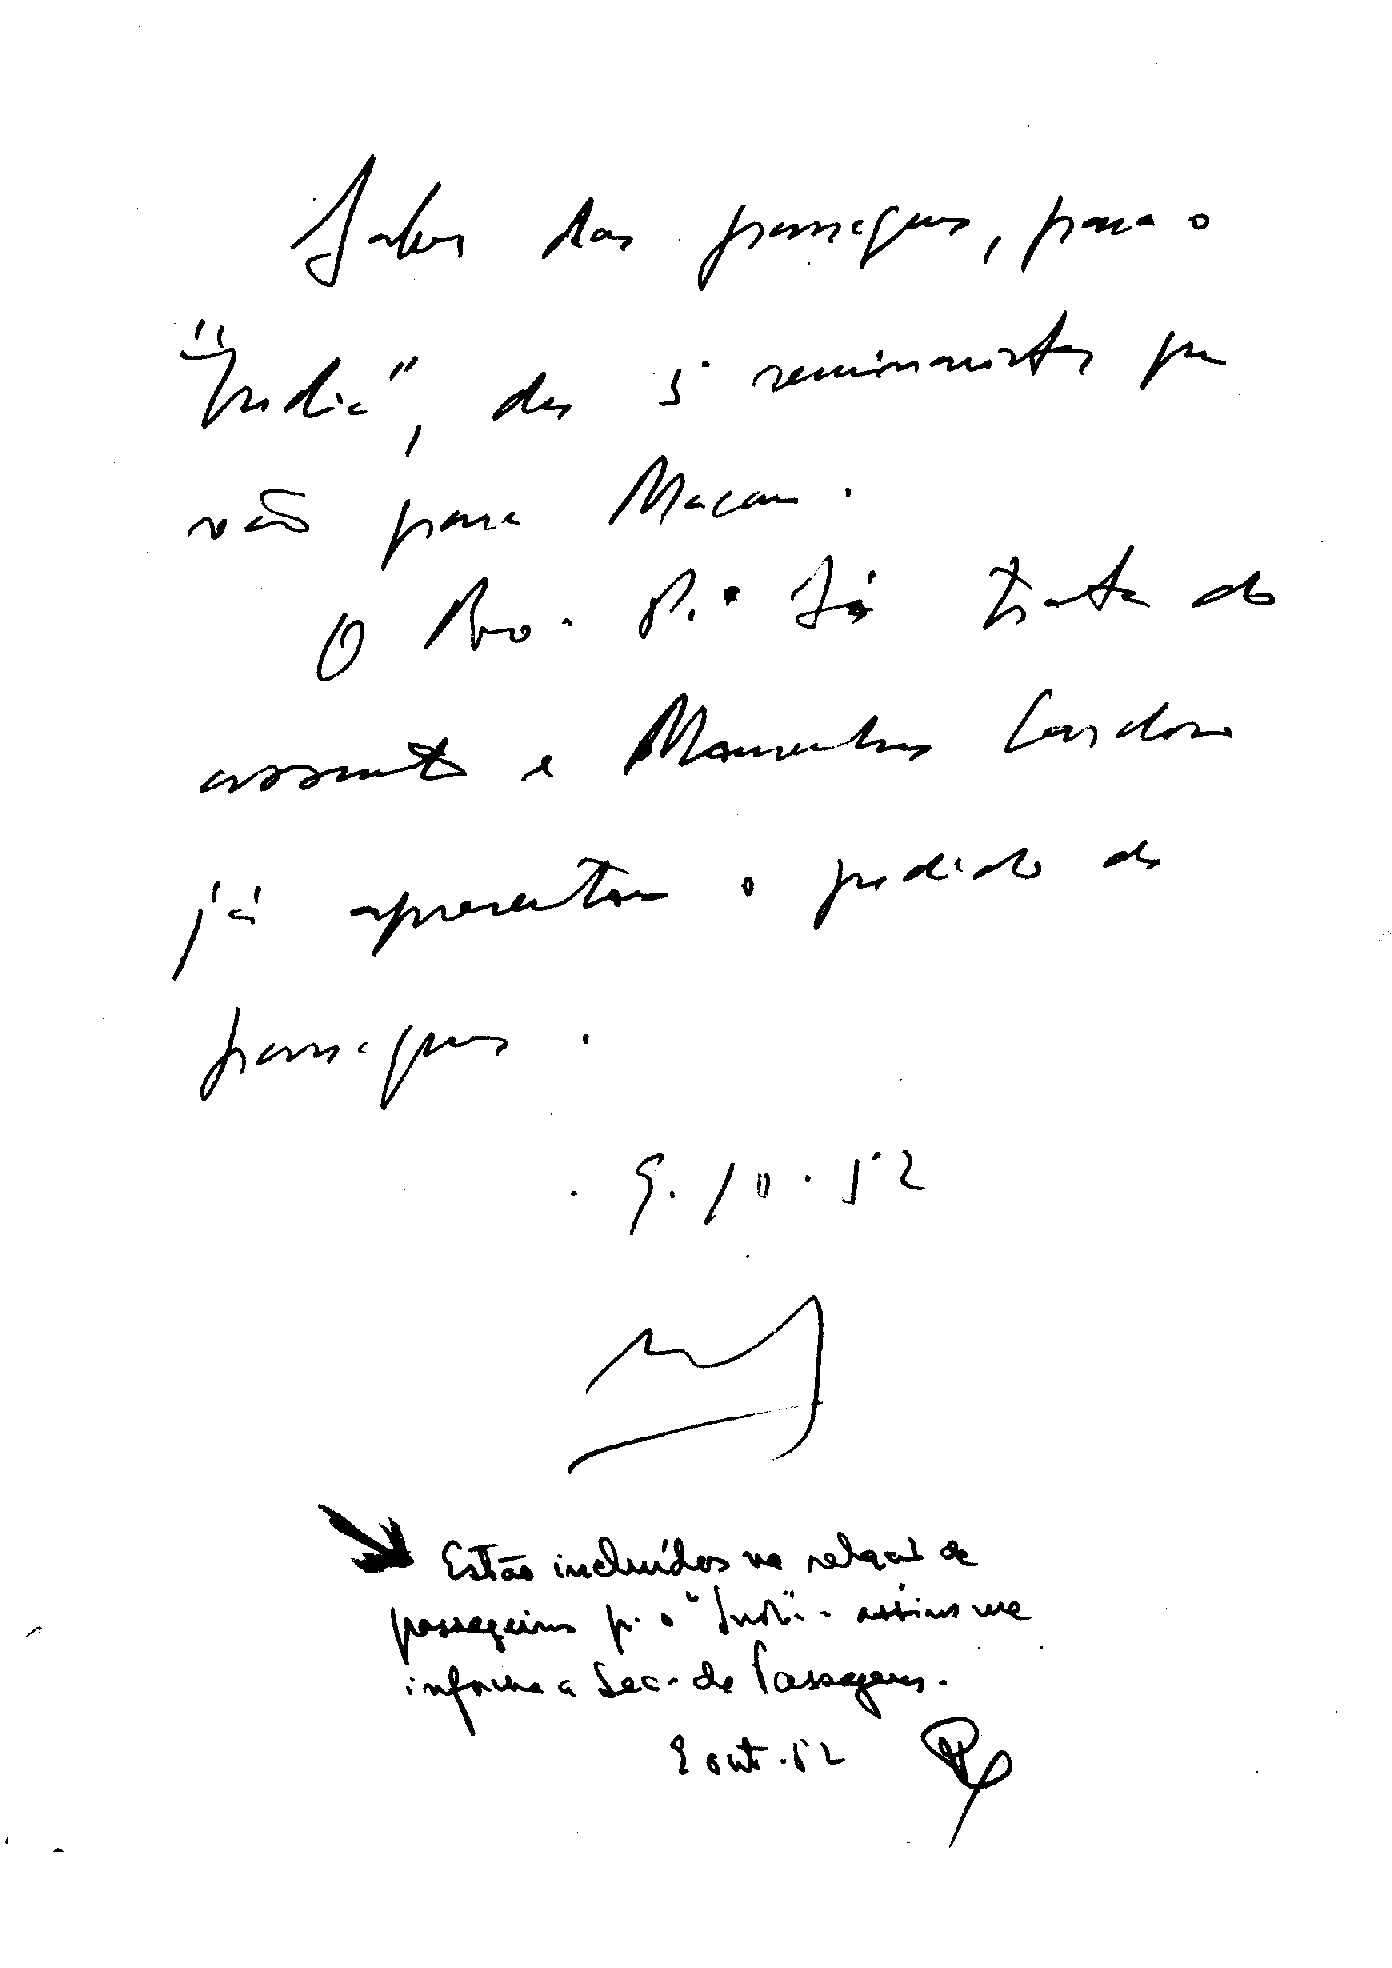 Saber das passagens, para o
"India", dos 5 seminaristas que
vão para Macau.
O Rev. P.e Sá trata do
assunto e Cardoso
já apresentou o pedido de
passagens.
9.10.52
Estão incluídos na relação de
passageiros p. o "India" - assim me
informa a Sec. de Passagens.
9 out. 52